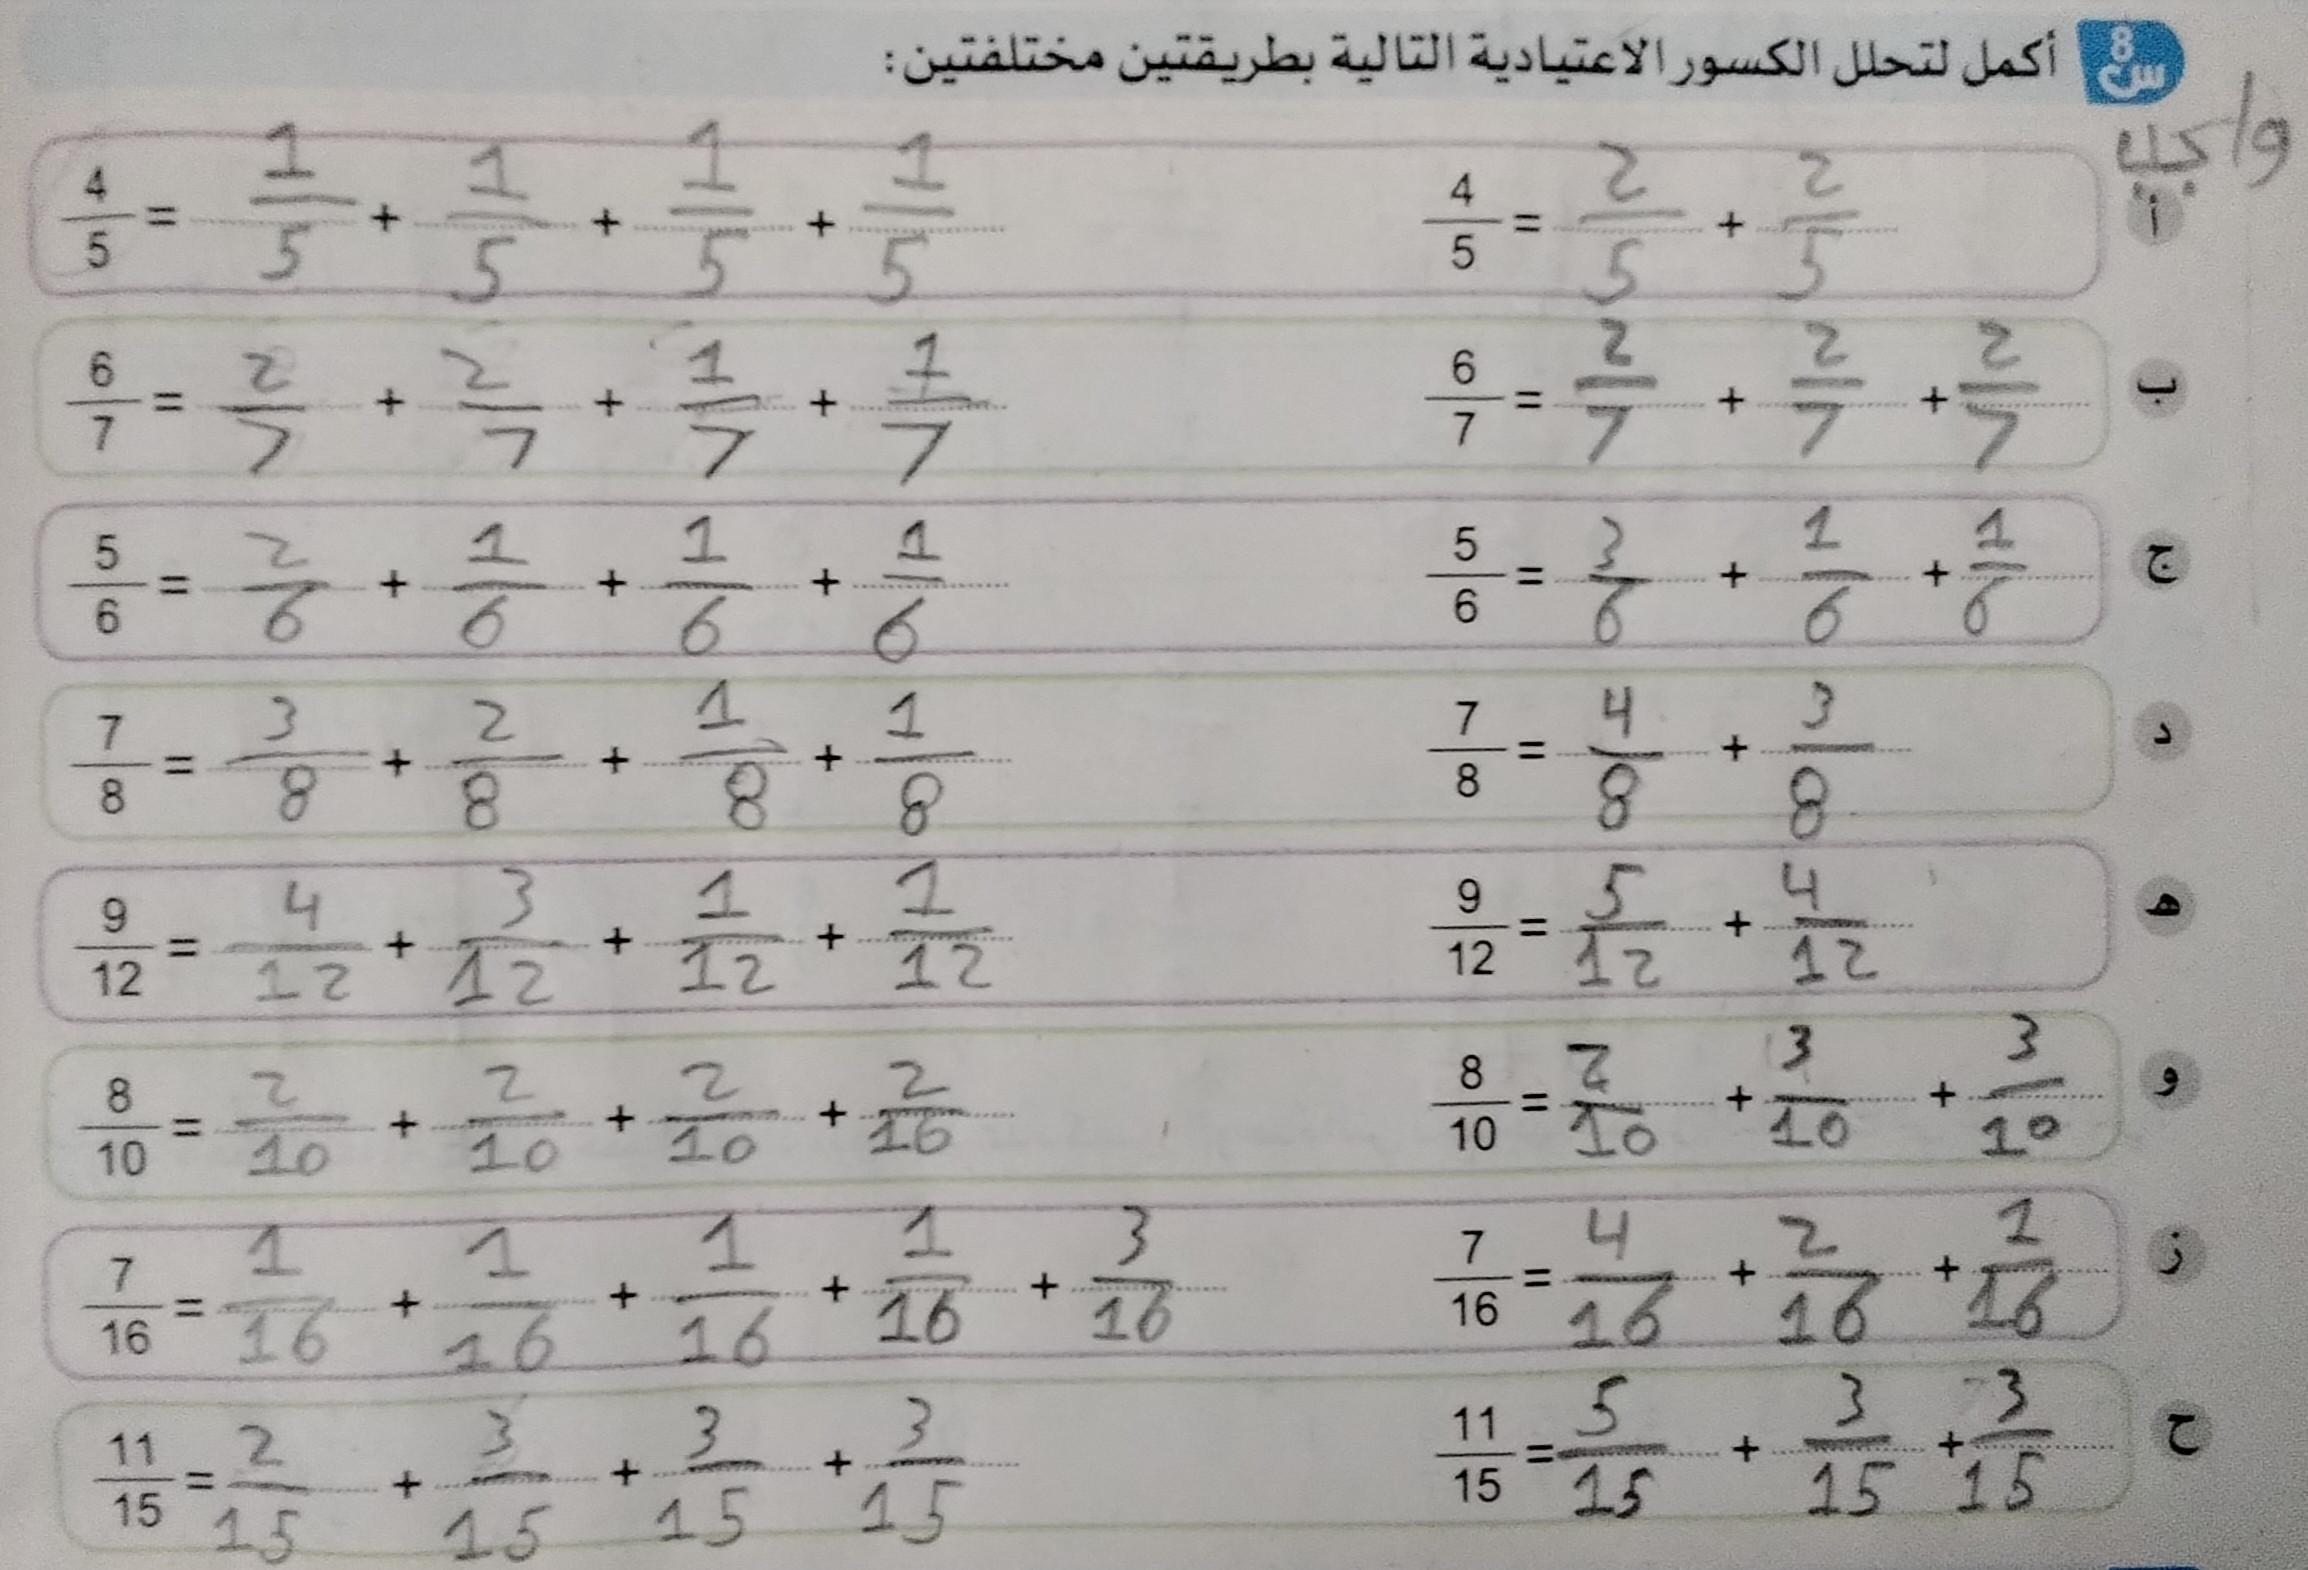 س8 أكمل لتحلل الكسور الاعتيادية التالية بطريقتين مختلفتين:
واجب
أ 4/5 = 2/5 + 2/5
4/5 = 1/5 + 1/5 + 1/5 + 1/5
ب 6/7 = 2/7 + 2/7 + 2/7
6/7 = 2/7 + 2/7 + 1/7 + 1/7
ج 5/6 = 3/6 + 1/6 + 1/6
5/6 = 2/6 + 1/6 + 1/6 + 1/6
د 7/8 = 4/8 + 3/8
7/8 = 3/8 + 2/8 + 1/8 + 1/8
ه 9/12 = 5/12 + 4/12
9/12 = 4/12 + 3/12 + 1/12 + 1/12
و 8/10 = 2/10 + 3/10 + 3/10
8/10 = 2/10 + 2/10 + 2/10 + 2/10
ز 7/16 = 4/16 + 2/16 + 1/16
7/16 = 1/16 + 1/16 + 1/16 + 1/16 + 3/16
ح 11/15 = 5/15 + 3/15 + 3/15
11/15 = 2/15 + 3/15 + 3/15 + 3/15